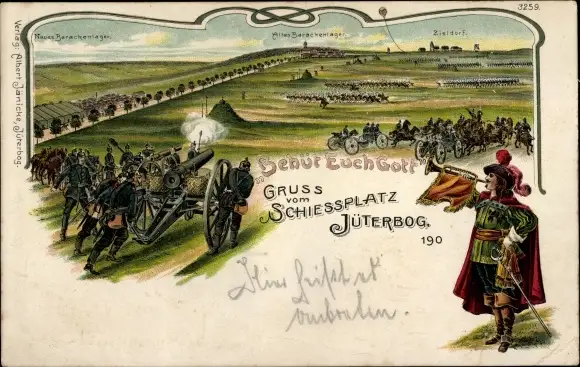 3259.
Neues Barackenlager.
Altes Barackenlager.
Zieldorf.
Verlag: Albert Janicke, Jüterbog.
„Behüt Euch Gott"
GRUSS
vom
SCHIESSPLATZ
JÜTERBOG.
190
Hier heißt es